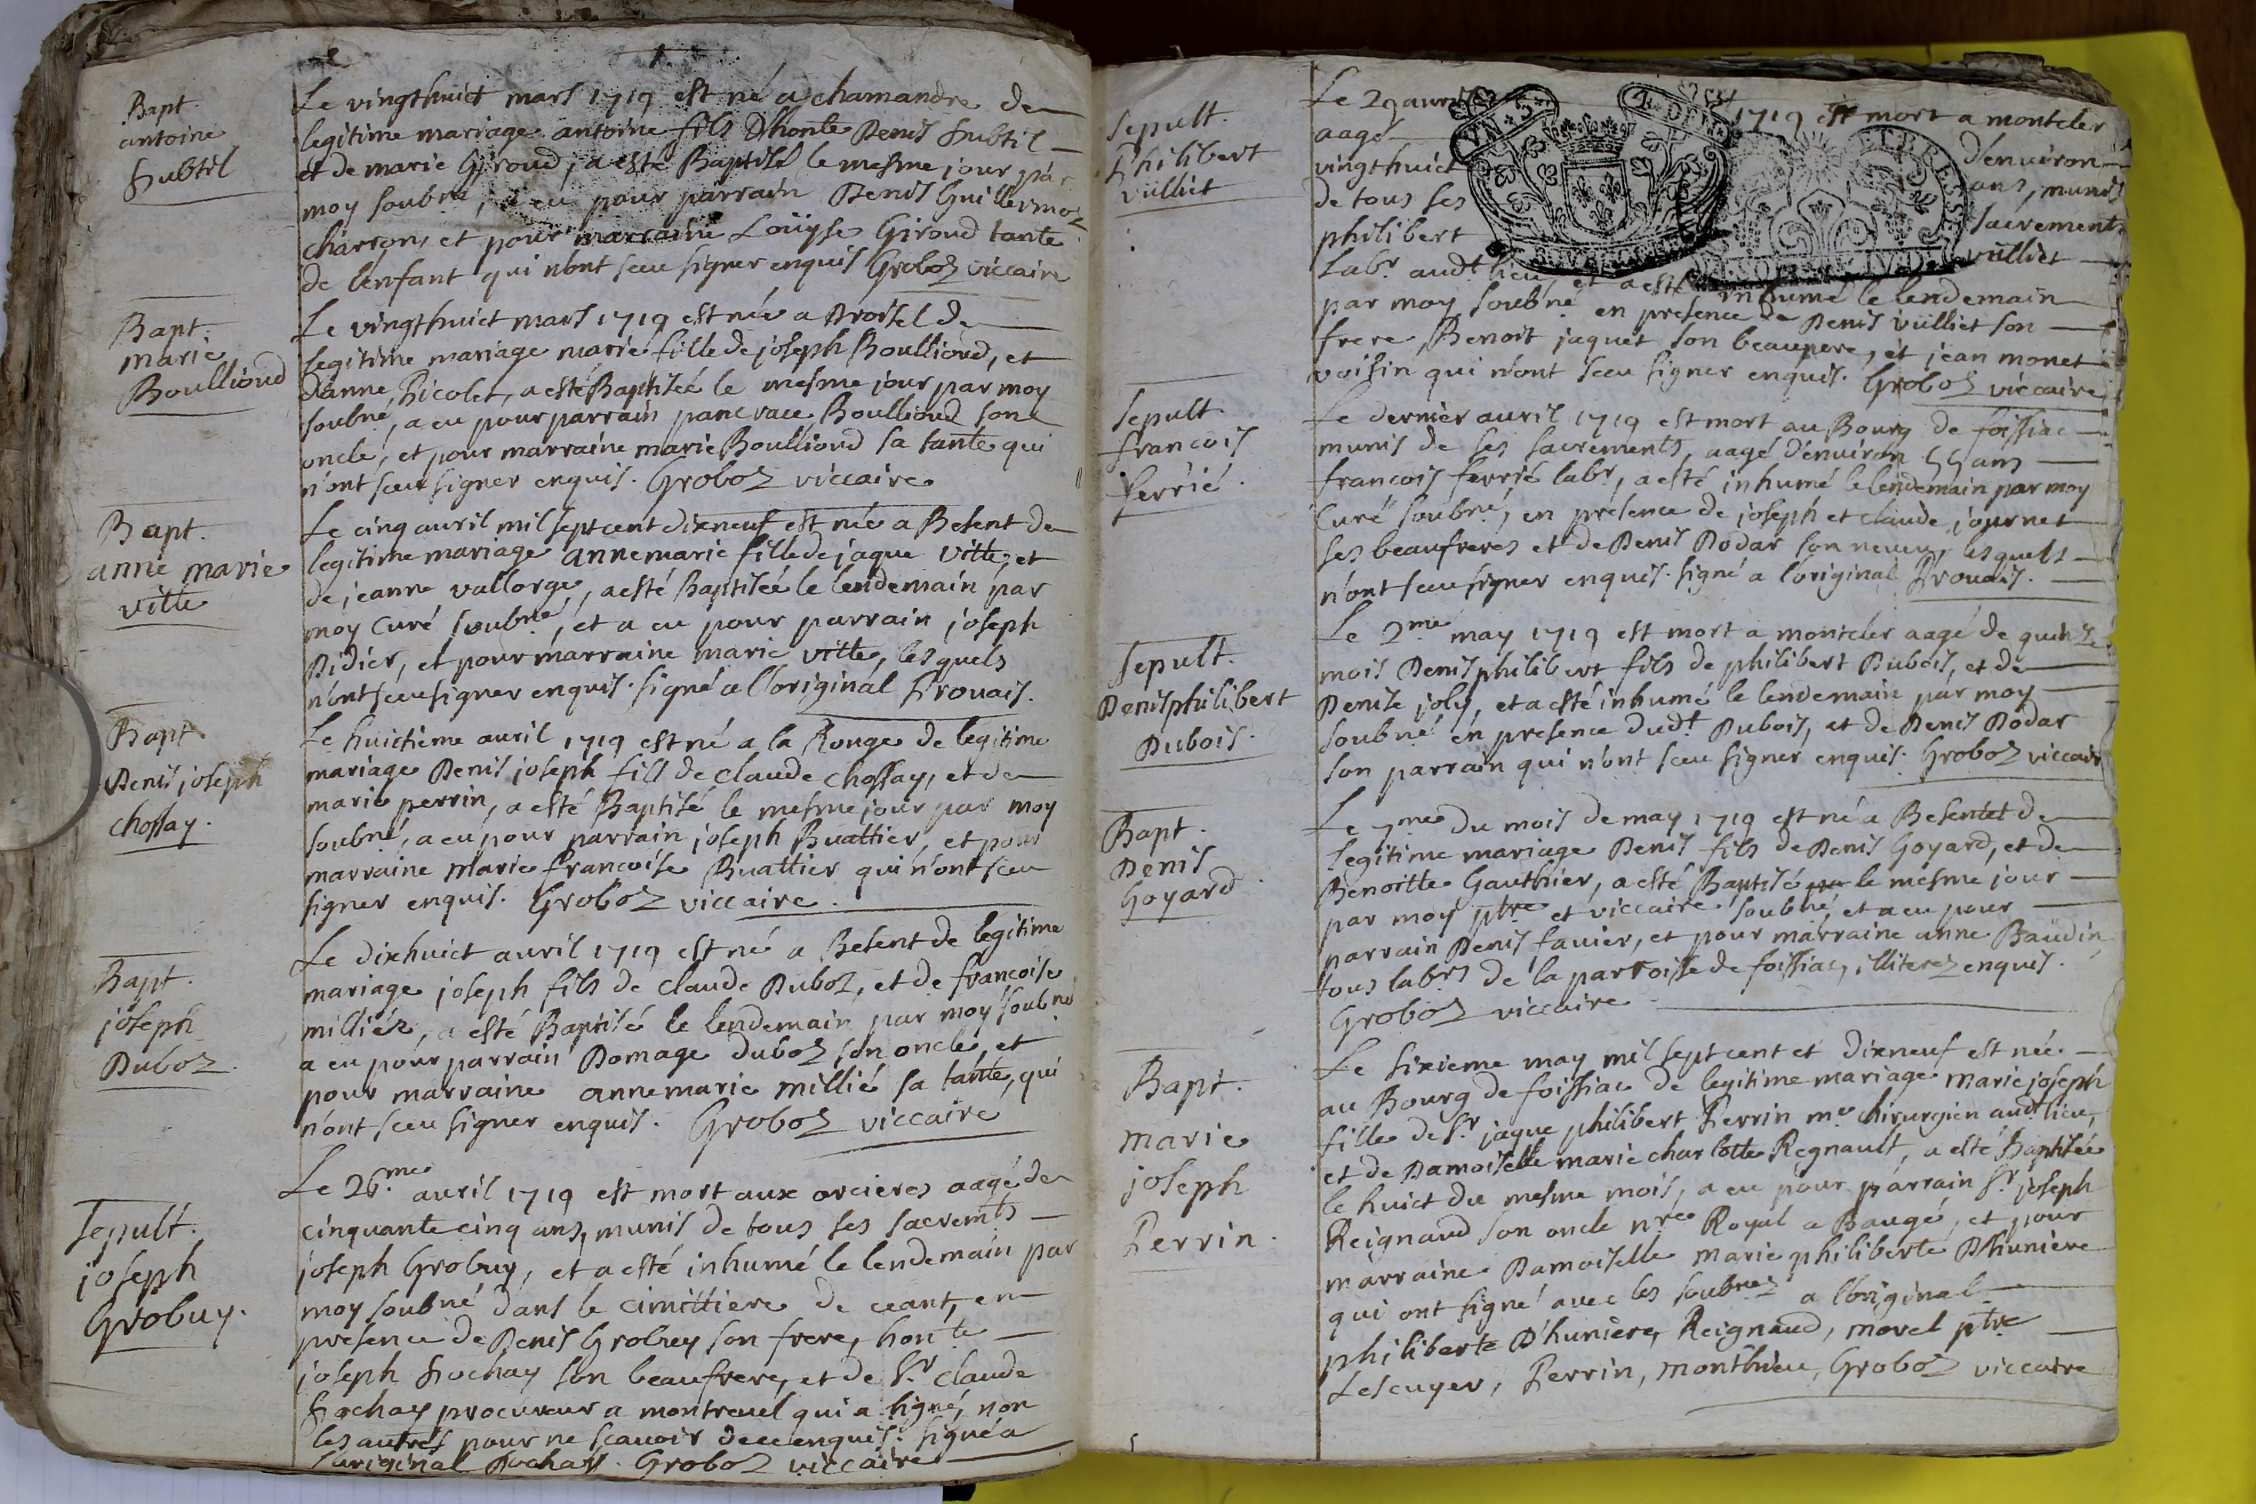 Bapt.
antoine
Subtil
Le vingthuict mars 1719 est né a chamandre de
legitime mariage antoine fils Dhonte Denis Subtil
et de marie Giroud, a esté Baptisé le mesme jour par
moy soubné, a eu pour parrain Denis Guillermoz
charron, et pour marraine Loüyse Giroud tante
de lenfant qui n'ont sceu signer enquis Groboz viccaire
Bapt.
marie
Boullioud
Le vingthuict mars 1719 est née a Broisel de
legitime mariage marie fille de joseph Boullioud, et
D'anne Nicolet, a esté Baptisée le mesme jour par moy
soubné, a eu pour parrain pancrace Boullioud son
oncle, et pour marraine marie Boullioud sa tante qui
n'ont sceu signer enquis. Groboz viccaire
Bapt.
anne marie
vitte
Le cinq avril mil sept cent dixneuf est née a Besent de
legitime mariage annemarie fille de jaque vitte, et
de jeanne vallorge, a esté Baptisée le lendemain par
moy Curé soubné, et a eu pour parrain joseph
Didier, et pour marraine marie vitte, lesquels
n'ont sceu signer enquis. signé a l'original Frouais.
Bapt.
Denis joseph
chossay.
Le huictieme avril 1719 est né a la Rouge de legitime
mariage Denis joseph fils de claude chossay, et de
marie perrin, a esté Baptisé le mesme jour par moy
soubné, a eu pour parrain joseph Buattier, et pour
marraine marie francoise Buattier qui n'ont sceu
signer enquis. Groboz viccaire.
Bapt.
joseph
Duboz.
Le dixhuict avril 1719 est né a Besent de legitime
mariage joseph fils de claude Duboz, et de francoise
milliéz, a esté Baptisé le lendemain par moy soubné
a eu pour parrain Domage duboz son oncle, et
pour marraine annemarie millié sa tante, qui
n'ont sceu signer enquis. Groboz viccaire
Sepult.
joseph
Grobuy.
Le 26.me avril 1719 est mort aux orcieres aagé de
cinquante cinq ans, munis de tous ses sacremts
joseph Grobuy, et a esté inhumé le lendemain par
moy soubné dans le cimittiere de ceant, en
presence de Denis Grobuy son frere, honte
joseph Sochay son beaufrere, et de Sr. claude
Sochay procureur a montreuel qui a signé, non
les autres pour ne scavoir de ce enquis. signé a
l'original Sochay. Groboz viccaire
Sepult.
Philibert
vulliet
Le 29 avril 1719 est mort a montcler
aagé D'environ
vingthuict ans, munis
de tous ses sacrements
philibert vulliet
Labr. audt. lieu et a esté inhumé le lendemain
par moy soubné en presence de Denis vulliet son
frere, Benoit jaquet son beaupere, et jean monet
voisin qui n'ont sceu signer enquis. Groboz viccaire
Sepult.
francois
ferrié.
Le dernier avril 1719 est mort au Bourg de foissiac
munis de ses sacrements, aagé D'environ 55 ans
francois ferrié labr, a esté inhumé le lendemain par moy
Curé soubné, en presence de joseph et claude journet
ses beaufreres et de Denis Dodar son neveu, lesquels
n'ont sceu signer enquis. signé a l'original Frouais.
Sepult.
Denisphilibert
Dubois.
Le 2me may 1719 est mort a montcler aagé de quinze
mois Denisphilibert fils de philibert Dubois, et de
Denise joly, et a esté inhumé le lendemain par moy
soubné en presence dudt. Dubois, et de Denis Dodar
son parrain qui n'ont sceu signer enquis. Groboz viccaire
Bapt.
Denis
Goyard.
Le 7me du mois de may 1719 est né a Besentet de
legitime mariage Denis fils de Denis Goyard, et de
Benoitte Gauthier, a esté Baptisé le mesme jour
par moy ptre et viccaire soubné, et a eu pour
parrain Denis favier, et pour marraine anne Baudin,
tous labrs de la parroisse de foissiac, illiterez enquis.
Groboz viccaire
Bapt.
marie
joseph
Perrin.
Le sixieme may mil sept cent et dixneuf est née
au Bourg de foissiac de legitime mariage marie joseph
fille de Sr. jaque philibert Perrin me chirurgien audt. lieu,
et de Damoiselle marie charlotte Regnault, a esté Baptisée
le huict du mesme mois, a eu pour parrain Sr. joseph
Reignaud son oncle nre Royal a Baugé, et pour
marraine Damoiselle marie philiberte D'huniere
qui ont signé avec les soubnez a l'original
philiberte D'huniere, Reignaud, morel ptre
Lescuyer, Perrin, monthieu, Groboz viccaire